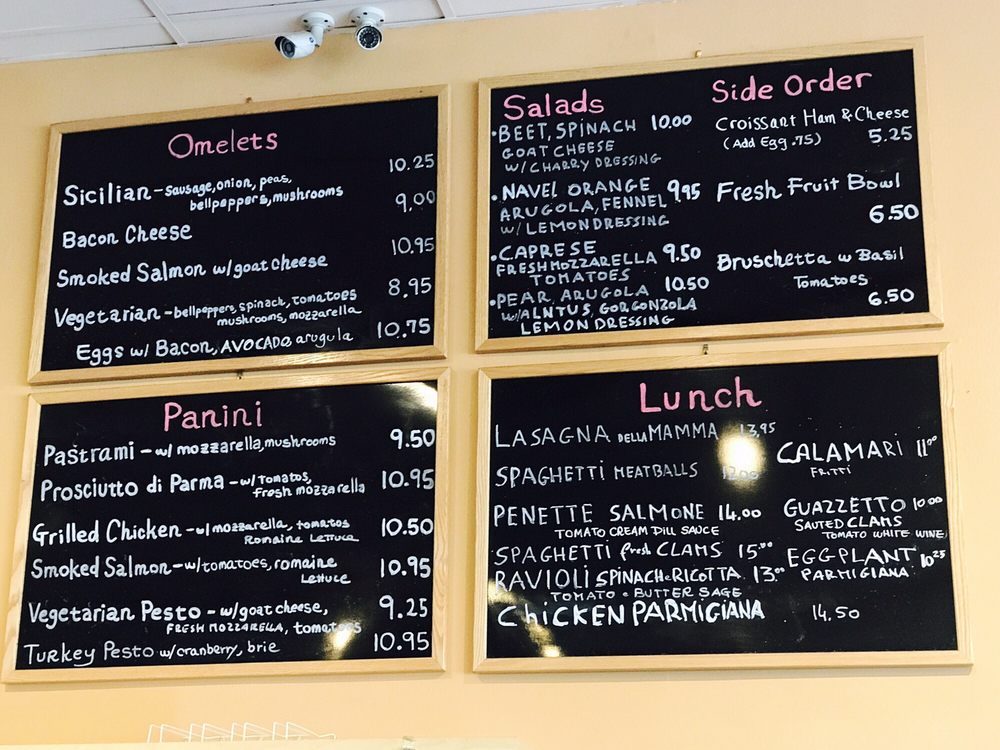 Omelets
Sicilian - sausage, onion, peas, 10.25
bellpeppers, mushrooms
Bacon Cheese 9.00
Smoked Salmon w/ goat cheese 10.95
Vegetarian - bellpeppers, spinach, tomatoes 8.95
mushrooms, mozzarella
Eggs w/ Bacon, AVOCADO arugula 10.75
Salads
• BEET, SPINACH 10.00
GOAT CHEESE
W/ CHARRY DRESSING
• NAVEL ORANGE 9.95
ARUGOLA, FENNEL
W/ LEMON DRESSING
• CAPRESE 9.50
FRESH MOZZARELLA
TOMATOES
• PEAR, ARUGOLA 10.50
W/ ALNTUS, GORGONZOLA
LEMON DRESSING
Side Order
Croissant Ham & Cheese
(Add Egg .75) 5.25
Fresh Fruit Bowl
6.50
Bruschetta w Basil
Tomatoes
6.50
Panini
Pastrami - w/ mozzarella, mushrooms 9.50
Prosciutto di Parma - w/ tomatos, 10.95
fresh mozzarella
Grilled Chicken - w/ mozzarella, tomatos 10.50
Romaine Lettuce
Smoked Salmon - w/ tomatoes, romaine 10.95
Lettuce
Vegetarian Pesto - w/ goat cheese, 9.25
FRESH MOZZARELLA, tomatoes
Turkey Pesto w/ cranberry, brie 10.95
Lunch
LASAGNA DELLA MAMMA 13,95
SPAGHETTI MEATBALLS 12.00
PENETTE SALMONE 14.00
TOMATO CREAM DILL SAUCE
SPAGHETTI fresh CLAMS 15.00
RAVIOLI SPINACH e RICOTTA 13.00
TOMATO e BUTTER SAGE
CHICKEN PARMIGIANA 14.50
CALAMARI 11.00
FRITTI
GUAZZETTO 10.00
SAUTED CLAMS
TOMATO WHITE WINE
EGGPLANT 10.25
PARMIGIANA